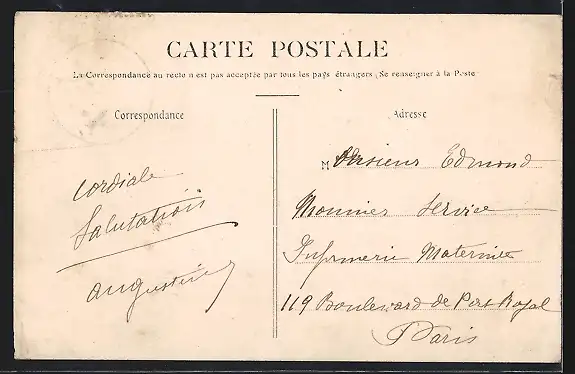 CARTE POSTALE
La Correspondance au recto n'est pas acceptée par tous les pays étrangers (Se renseigner à la Poste
Correspondance
cordiale
Salutations
augustine
Adresse
Monsieur Edmond
Mounier Service
Infirmerie Maternité
119 Boulevard de Port Royal
Paris